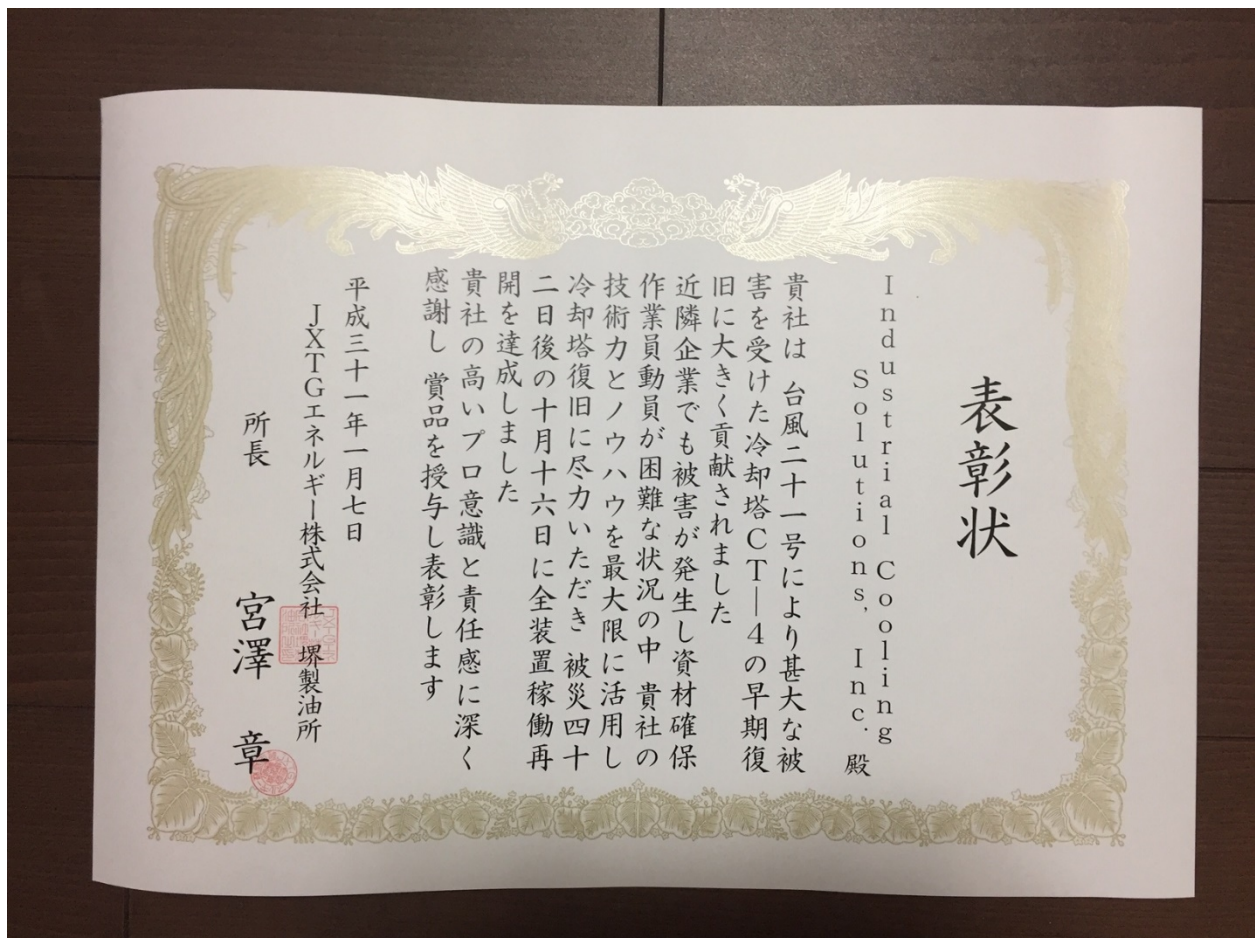 表彰状
Industrial Cooling
Solutions, Inc. 殿
貴社は 台風二十一号により甚大な被
害を受けた冷却塔CT―4の早期復
旧に大きく貢献されました
近隣企業でも被害が発生し資材確保
作業員動員が困難な状況の中 貴社の
技術力とノウハウを最大限に活用し
冷却塔復旧に尽力いただき 被災四十
二日後の十月十六日に全装置稼働再
開を達成しました
貴社の高いプロ意識と責任感に深く
感謝し 賞品を授与し表彰します
平成三十一年一月七日
JXTGエネルギー株式会社 堺製油所
所長 宮澤 章